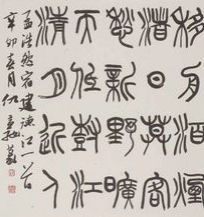 移舟泊煙
渚日莫客
愁新野曠
天低樹江
清月近人
孟浩然宿建德江一首
辛卯春月仇